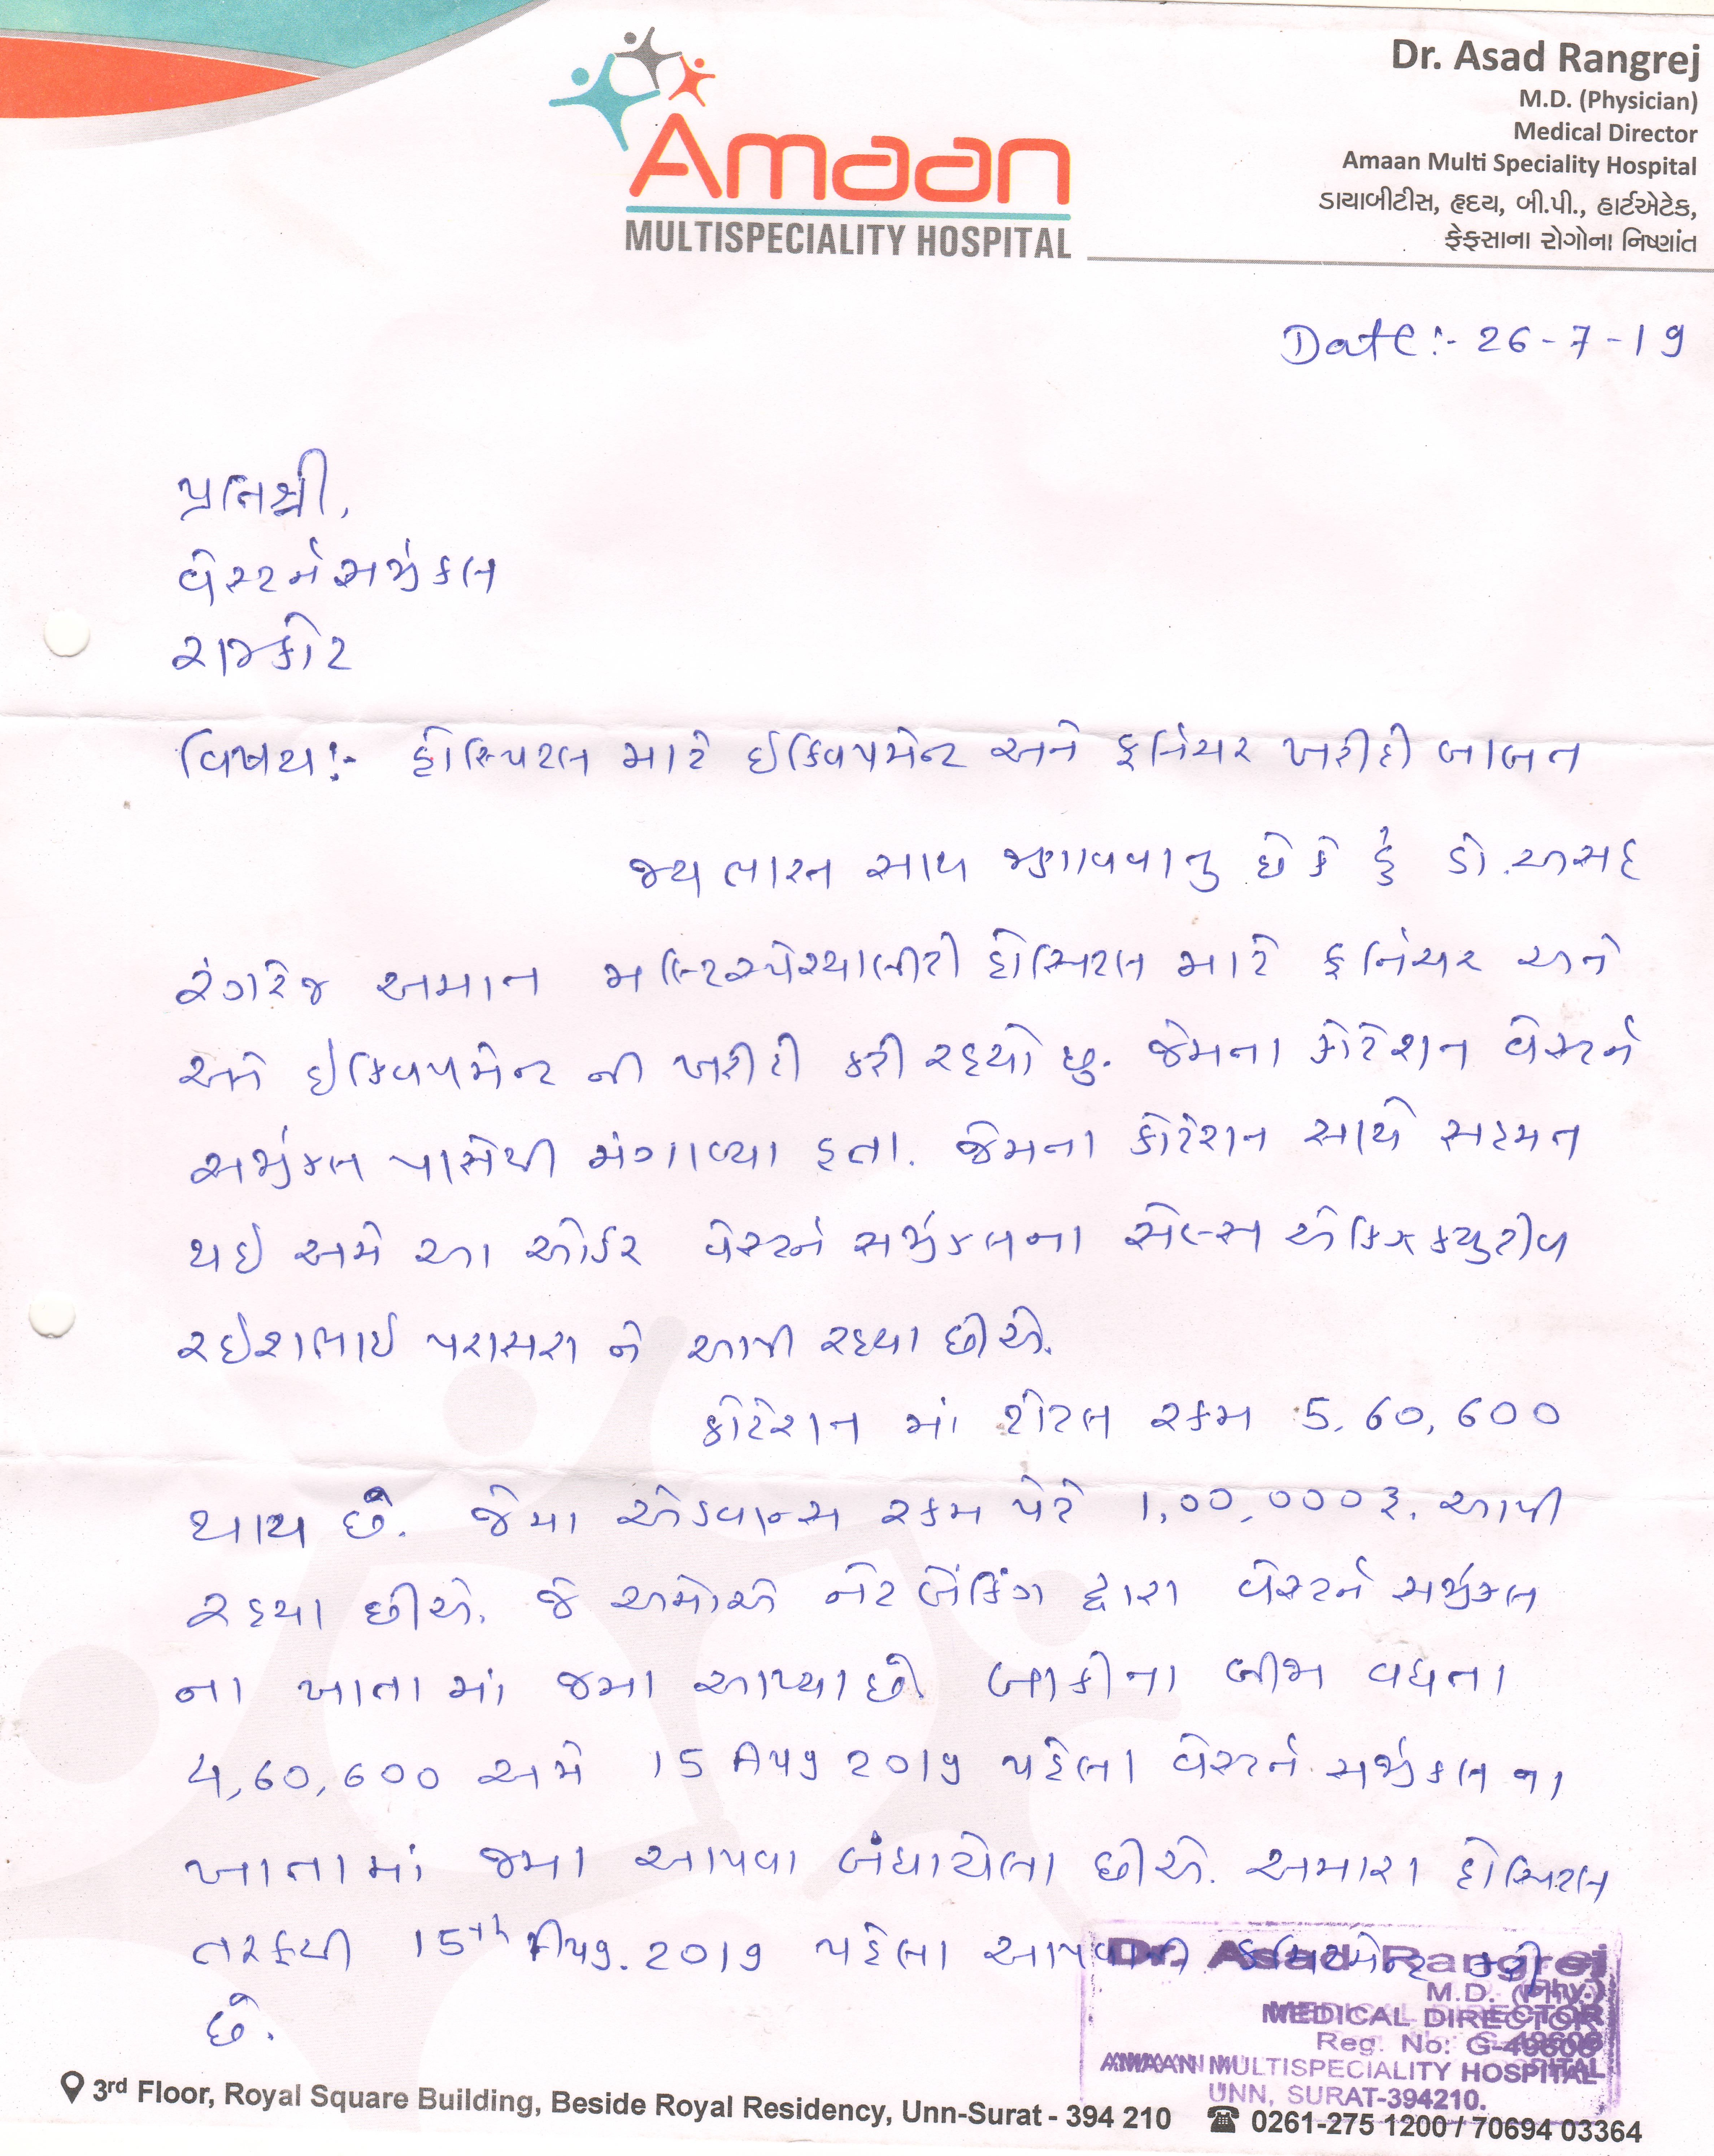 Amaan
MULTISPECIALITY HOSPITAL
Dr. Asad Rangrej
M.D. (Physician)
Medical Director
Amaan Multi Speciality Hospital
ડાયાબીટીસ, હૃદય, બી.પી., હાર્ટએટેક,
ફેફસાના રોગોના નિષ્ણાંત
Date:- 26-7-19
પ્રતિશ્રી,
વેસ્ટર્ન સર્જીકલ
રાજકોટ
વિષય:- હોસ્પિટલ માટે ઈક્વિપમેન્ટ અને ફર્નિચર ખરીદી બાબત
જય ભારત સાથ જણાવવાનુ છે કે હું ડો. અસદ
રંગરેજ અમાન મલ્ટિસ્પેશ્યાલીટી હોસ્પિટલ માટે ફર્નિચર અને
અમે ઈક્વિપમેન્ટ ની ખરીદી કરી રહયો છુ. જેમના કોટેશન વેસ્ટર્ન
સર્જીકલ પાસેથી મંગાવ્યા હતા. જેમના કોટેશન સાથે સહમત
થઇ અમે આ ઓર્ડર વેસ્ટર્ન સર્જીકલના સેલ્સ એક્ઝિક્યુટીવ
રઇશભાઇ પરાસરા ને આપી રહયા છીએ.
કોટેશન માં ટોટલ રકમ 5,60,600
થાય છે. જેમા એડવાન્સ રકમ પેટે 1,00,000 રૂ. આપી
રહયા છીએ. જે અમોએ નેટ બેંકિંગ દ્વારા વેસ્ટર્ન સર્જીકલ
ના ખાતા માં જમા આપ્યા છે. બાકીના બીજા વધતા
4,60,600 અમે 15 Aug 2019 પહેલા વેસ્ટર્ન સર્જીકલ ના
ખાતામાં જમા આપવા બંધાયેલા છીએ. અમારા હોસ્પિટલ
તરફથી 15th Aug. 2019 પહેલા આપવાની કમિટમેન્ટ કરી
છે.
Dr. Asad Rangrej
M.D. (Phy.)
MEDICAL DIRECTOR
Reg. No: G-49608
AMAAN MULTISPECIALITY HOSPITAL
UNN, SURAT-394210.
3rd Floor, Royal Square Building, Beside Royal Residency, Unn-Surat - 394 210 0261-275 1200 / 70694 03364